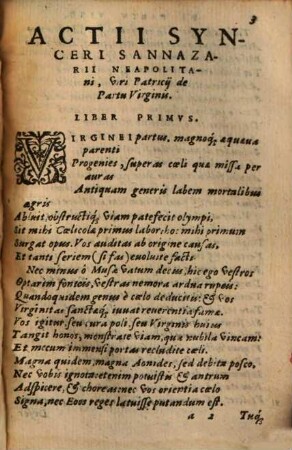 3
ACTII SYN-
CERI SANNAZA-
RII NEAPOLITA-
ni, Viri Patricij de
Partu Virginis.
LIBER PRIMVS.
VIRGINEI partus, magnoq́; æquæua
parenti
Progenies, superas cœli quæ missa per
auras
Antiquam generis labem mortalibus
ægris
Abluit, obstructiq́; viam patefecit olympi,
Sit mihi Cælicolæ primus labor: hoc mihi primum
Surgat opus. Vos auditas ab origine causas,
Et tanti seriem (si fas) euoluite facti.
Nec minus ô Musæ vatum decus, hic ego vestros
Optarim fonteis, vestras nemora ardua rupeis:
Quandoquidem genus è cælo deducitis: & vos
Virginitas sanctaq́; iuuat reuerentia famæ.
Vos igitur seu cura poli, seu Virginis huius
Tangit honos, monstrate viam, qua nubila vincam:
Et mecum immensi portas recludite cæli.
Magna quidem, magna Aonides, sed debita posco,
Nec vobis ignota: etenim potuistis & antrum
Adspicere, & choreas: nec vos orientia cælo
Signa, nec Eoos reges latuisse putandum est.
a 2
Tuq́;